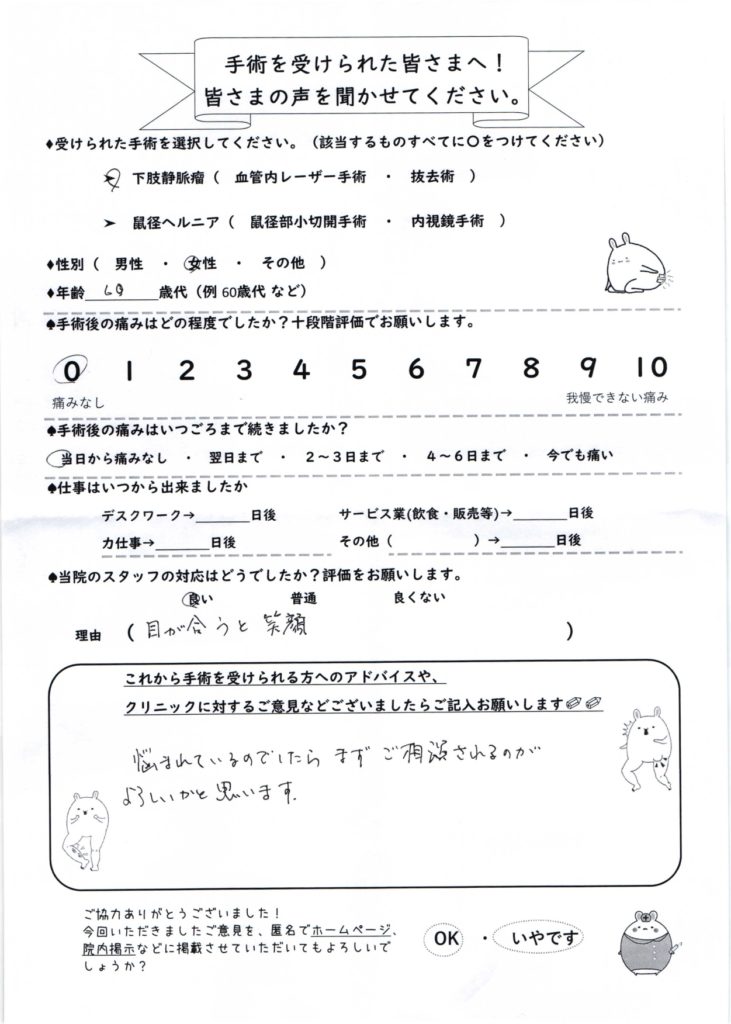 手術を受けられた皆さまへ！
皆さまの声を聞かせてください。
♦受けられた手術を選択してください。（該当するものすべてに〇をつけてください）
➤ 下肢静脈瘤（ 血管内レーザー手術 ・ 抜去術 ）
➤ 鼠径ヘルニア（ 鼠径部小切開手術 ・ 内視鏡手術 ）
♦性別（ 男性 ・ 女性 ・ その他 ）
♦年齢 60 歳代（例 60歳代 など）
♠手術後の痛みはどの程度でしたか？十段階評価でお願いします。
0 1 2 3 4 5 6 7 8 9 10
痛みなし 我慢できない痛み
♠手術後の痛みはいつごろまで続きましたか？
当日から痛みなし ・ 翌日まで ・ 2～3日まで ・ 4～6日まで ・ 今でも痛い
♠仕事はいつから出来ましたか
デスクワーク→______日後 サービス業(飲食・販売等)→______日後
力仕事→______日後 その他（ ）→______日後
♠当院のスタッフの対応はどうでしたか？評価をお願いします。
良い 普通 良くない
理由 ( 目が合うと笑顔 )
これから手術を受けられる方へのアドバイスや、
クリニックに対するご意見などございましたらご記入お願いします
悩まれているのでしたら まず ご相談されるのが
よろしいかと思います。
ご協力ありがとうございました！
今回いただきましたご意見を、匿名でホームページ、
院内掲示などに掲載させていただいてもよろしいで
しょうか？
OK ・ いやです